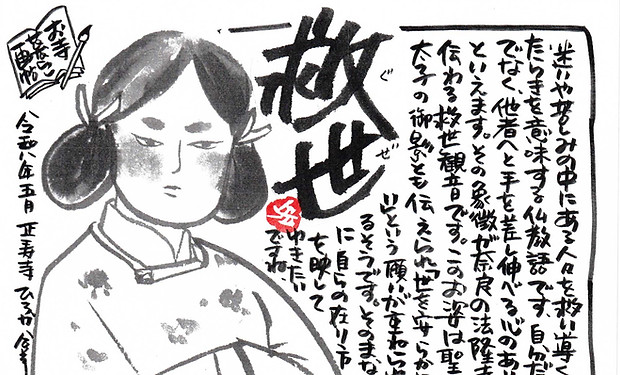 救世
ぐぜ
迷いや苦しみの中にある人々を救い導く
たらきを意味する仏教語です。自分だ
でなく、他者へと手を差し伸べる心のあ
といえます。その象徴が奈良の法隆寺
伝わる救世観音です。このお姿は聖
太子の御影とも伝えられ「世を安らかに
」という願いが重ねられ
るそうです。そのまな
に自らの在り方
を映して
ゆきたい
ですね。
お寺
画帖
令和八年五月 正寿寺